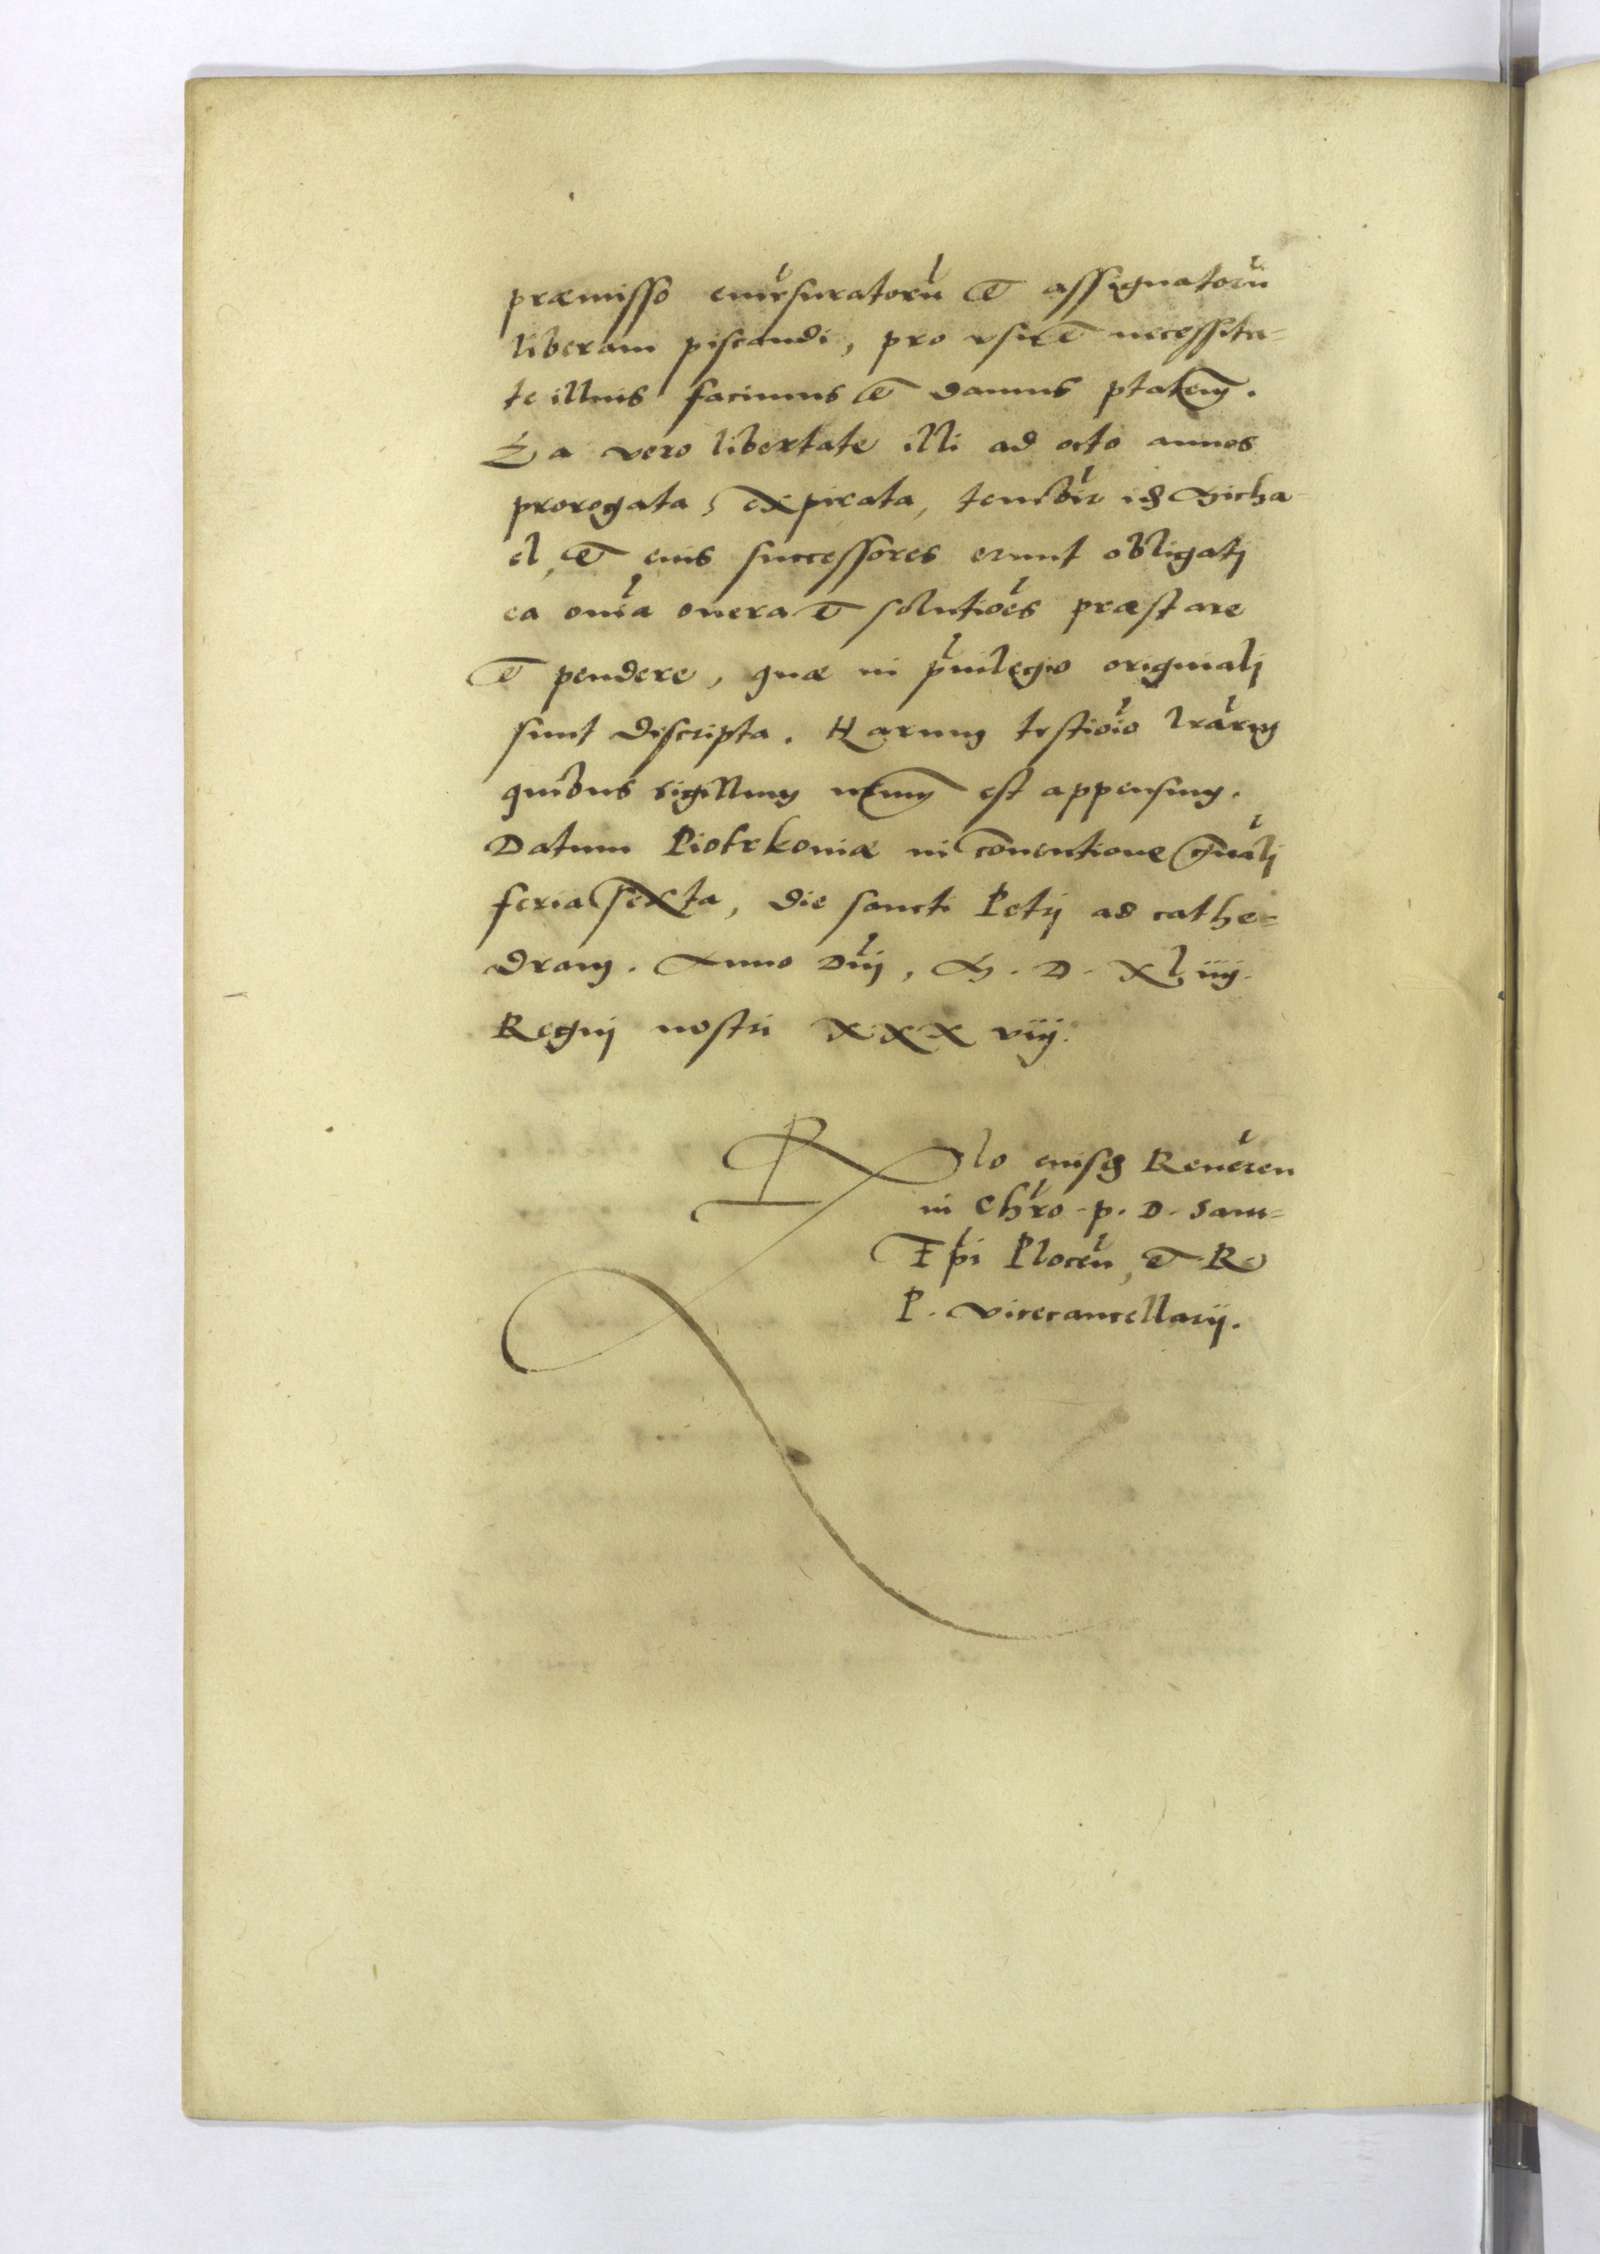 præmisso emẽsuratorũ et assignatorũ
liberam piscandi, pro usu et necessita-
te illius facimus et damus ptãtem.
Ea vero libertate illi ad octo annos
prorogata, expirata, tenebit̃ id Micha-
el, et eius successores erunt obligatj
ea oĩa onera et solutiões præstare
et pendere, quæ in pͥuilegio originalj
sunt discripta. Harum testiõio l̃rarum
quibus sigillum nr̃um est appensum.
Datum Piotrkoniæ in cõuentione gñalj
feria sexta, die sancti Petrj ad cathe-
dram. Anno Dñj, M. D. XLiiij.
Regnj nostri XXX viij.
R̃lo eiusdem Reueren̄
in Chr̃o p. D. Sam-
Epĩ Plocen̄, et R
P. vicecancellarij.